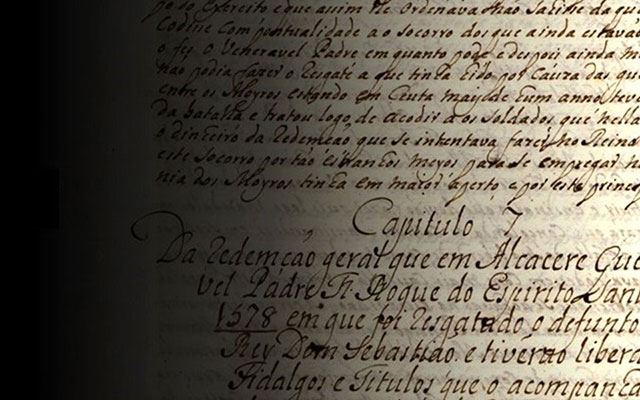 do Exercito e que assim lhe Ordenava não Sahisse da qui
Codisse Com pontualidade ao socorro dos que ainda estavão
o fes O Veneravel Padre em quanto pode e despois ainda m
não podia fazer o Resgate a que tinha hido por Cauza das que
entre os Moyros estando em Ceuta mais de hum anno teve
da batalha e tratou logo de acodir a os soldados que nella
o dinheiro da Redemcão que se intentava fazer no Reino
este Socorro por tão estranhos meyos para se empregar na
nia dos Moyros tinha em mayor aperto e por este princi
Capitulo 7
Da Redemcão geral que em Alcacere Que
vel Padre Fr. Roque do Espirito San
1578 em que foi resgatado o defunto
Rey Dom Sebastião e tiverão liber
Fidalgos e Titulos que o acompanha